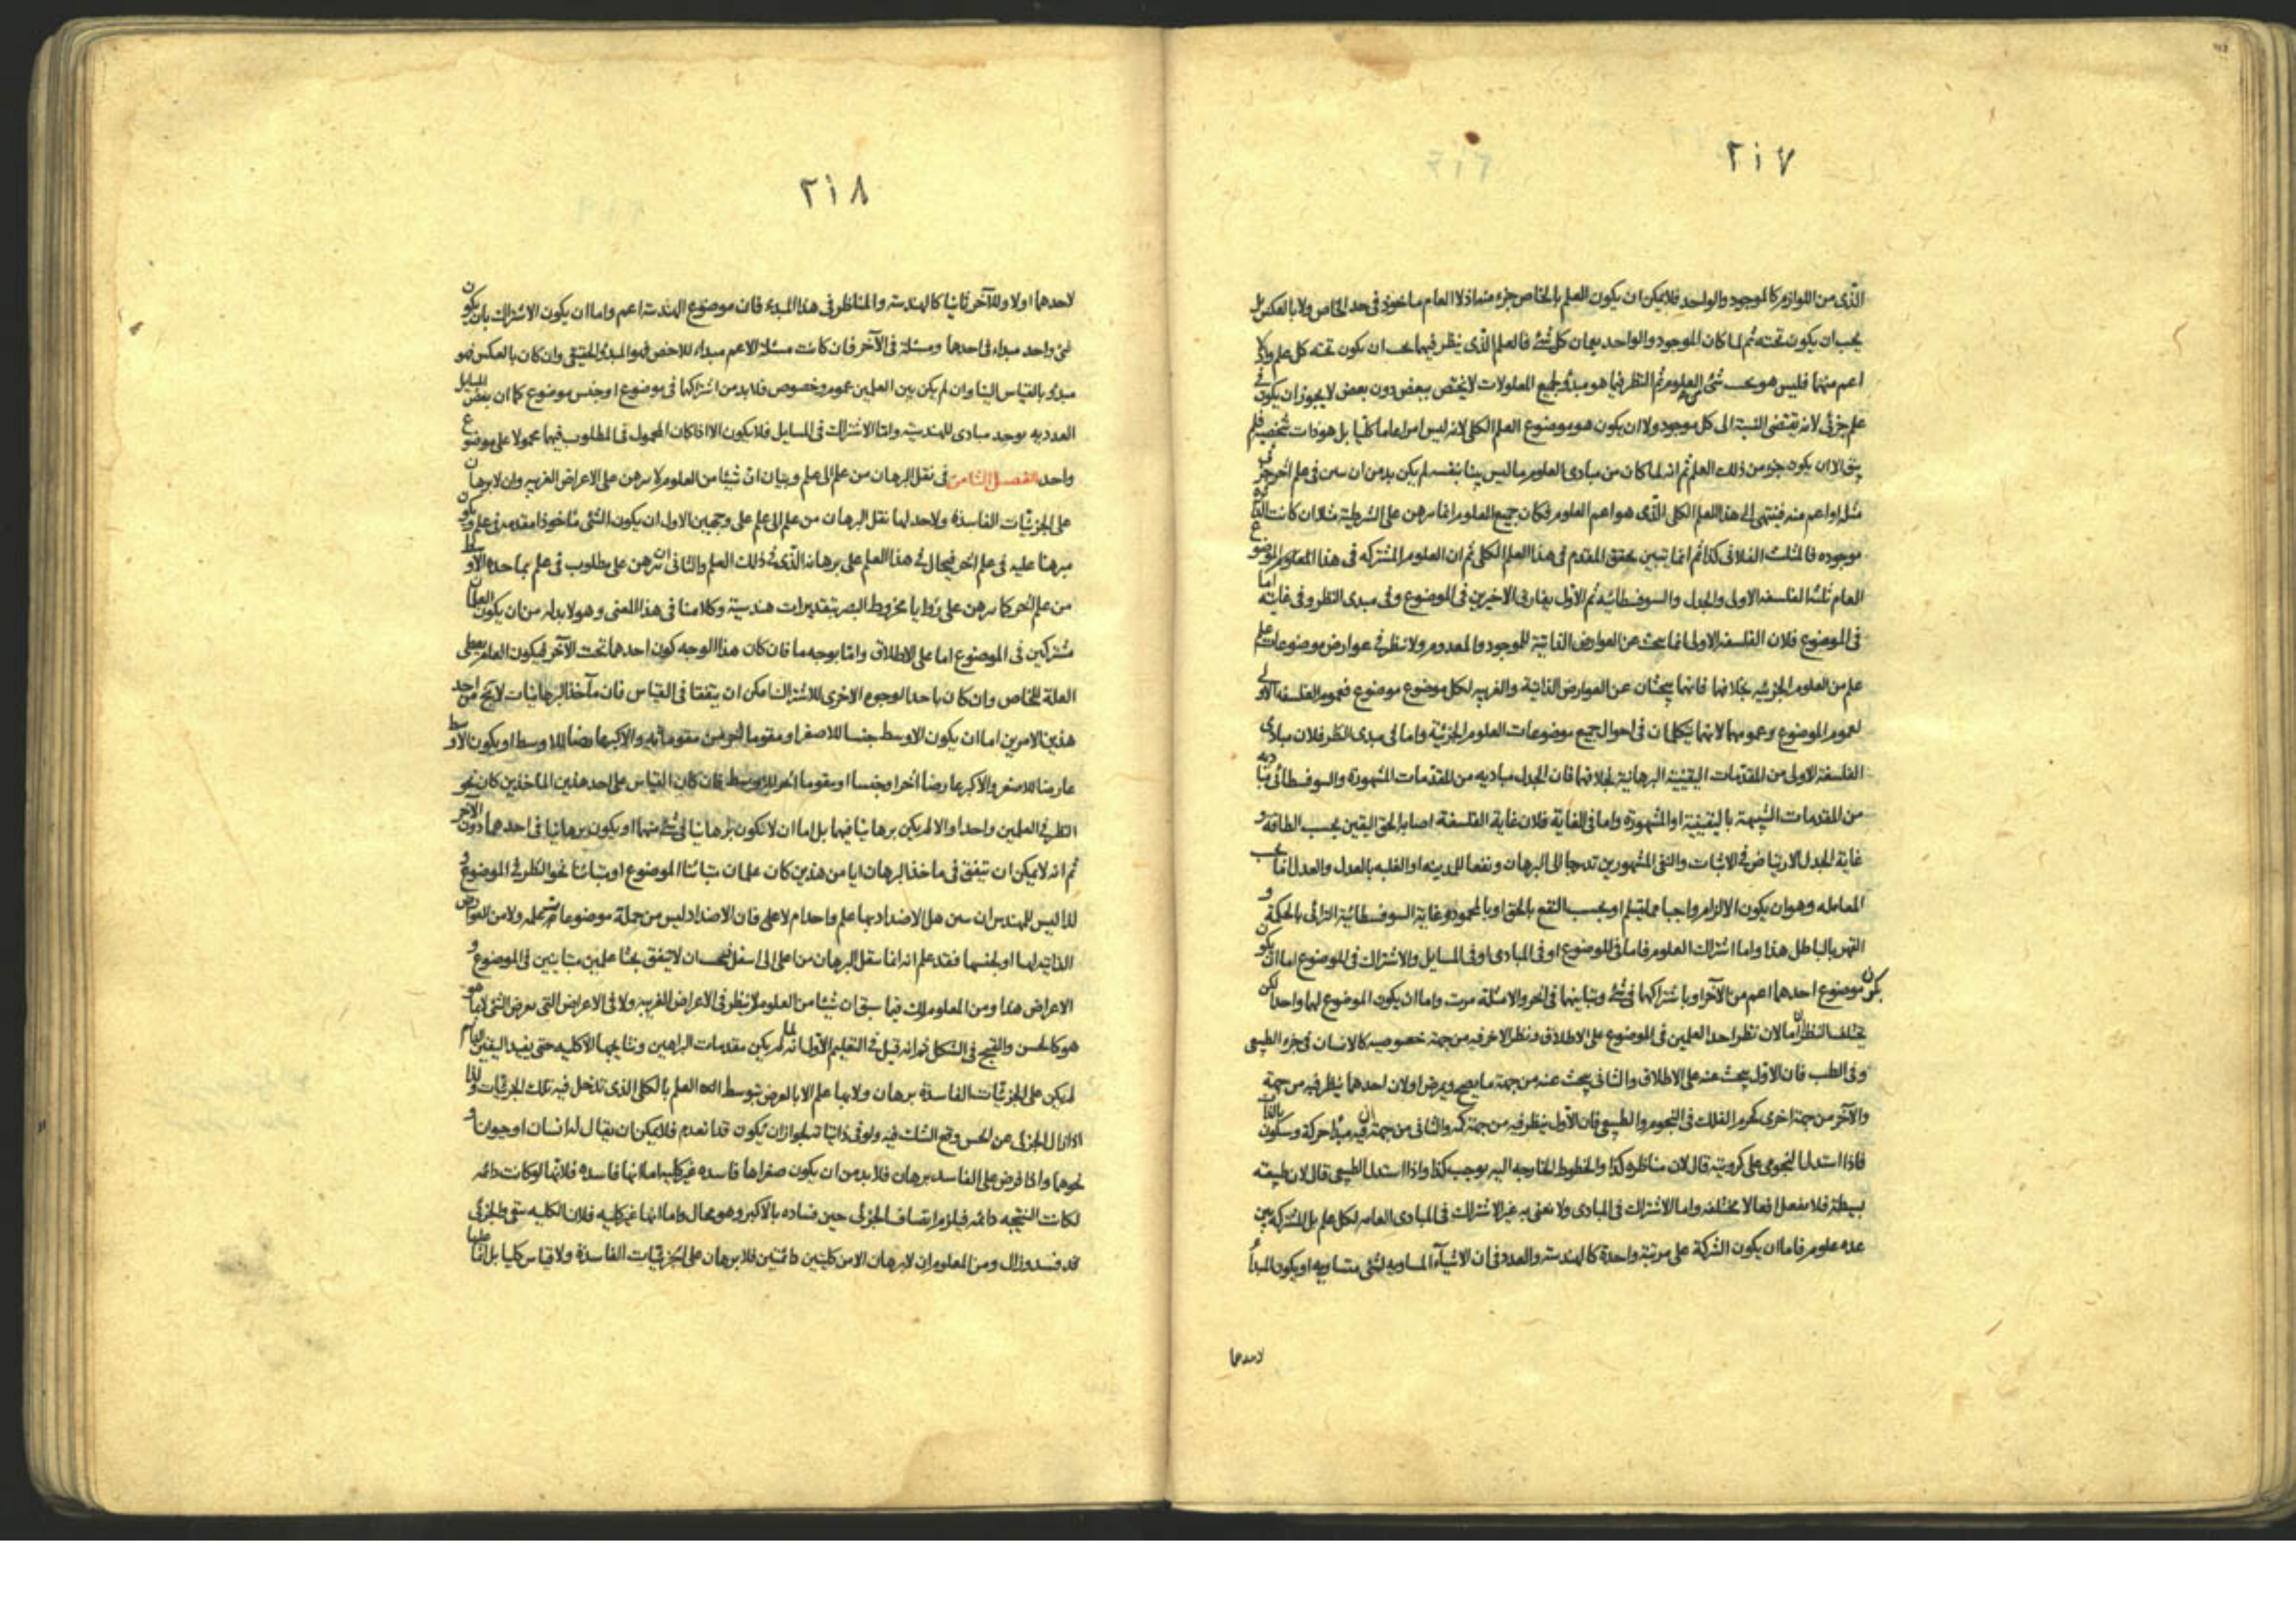 ٢١٧
الذى من اللوازم كالموجود والواحد فلا يمكن ان يكون العلم بالخاص جزء منه اذ لا العام ماخوذ فى حد الخاص ولا بالعكس بل
يجب ان يكون تحته ثم لما كان الموجود والواحد يعمان كل شئ فالعلم الذى ينظر فيهما يجب ان يكون تحته كل علم ولا
اعم منهما فليس هو تحت شئ من العلوم ثم النظر فيما هو مبدؤ لجميع المعلولات لا يختص ببعض دون بعض لا يجوز ان يكون فى
علم جزئى لانه يقتضى النسبة الى كل موجود ولا ان يكون هو موضوع العلم الكلى لانه ليس امرا عاما كليا بل هو ذات شخصية فلم
يبق الا ان يكون جزء من ذلك العلم ثم انه لما كان من مبادى العلوم ما ليس بينا بنفسه لم يكن بد من ان يبين فى علم آخر جزئى
مثله او اعم منه فينتهى الى هذا العلم الكلى الذى هو اعم العلوم فكان جميع العلوم انما يبرهن على الشرطية مثلا ان كانت الدائرة
موجوده فالمثلث الفلانى كذا ثم انما يتبين تحقق المقدم فى هذا العلم الكلى ثم ان العلوم المشتركه فى هذا المعلوم الموضوع
العام ثلثة الفلسفه الاولى والجدل والسوفسطائيه ثم الاول يفارق الاخيرين فى الموضوع وفى مبدى النظر وفى غايته اما
فى الموضوع فلان الفلسفه الاولى انما يبحث عن العوارض الذاتية للموجود والمعدوم ولا ننظر فى عوارض موضوعات علم
علم من العلوم الجزئيه بخلافهما فانهما يبحثان عن العوارض الذاتية والغريبه لكل موضوع موضوع فعموم الفلسفه الاولى
لعموم الموضوع وعمومهما لانهما يتكلمان فى احوال جميع موضوعات العلوم الجزئية واما فى مبدى النظر فلان مبادى
الفلسفة الاولى من المقدمات اليقينية البرهانية بخلافهما فان الجدل مباديه من المقدمات المشهورة والسوفسطائى مباديه
من المقدمات الشبيهة باليقينية او المشهورة واما فى الغاية فلان غاية الفلسفة اصابة الحق اليقين بحسب الطاقة و
غاية الجدل الارتياض فى الاثبات والنفى المشهورين تدرجا الى البرهان ونفعا للمدينه او الغلبه بالعدل والعدل انما بحسب
المعامله وهو ان يكون الالزام واجبا مما يتسلم او بحسب النفع بالحق او بالمحمود وغاية السوفسطائية الترائى بالحكمة و
القهر بالباطل هذا واما اشتراك العلوم فاما فى الموضوع او فى المبادى او فى المسايل والاشتراك فى الموضوع اما ان يكون
يكون موضوع احدهما اعم من الآخر او باشتراكهما فى شئ وتباينهما فى آخر والامثلة مرت واما ان يكون الموضوع لهما واحدا لكن
يختلف النظران اما لان نظر احد العلمين فى الموضوع على الاطلاق ونظر الاخر فيه من جهة خصوصيه كالانسان فى جزء الطبيعى
وفى الطب فان الاول يبحث عنه على الاطلاق والثانى يبحث عنه من جهة ما يصح ويمرض او لان احدهما ينظر فيه من جهة
والآخر من جهة اخرى كجرم الفلك فى النجوم والطبيعى فان الاول ينظر فيه من جهة كمه والثانى من جهة ان فيه مبدأ حركة وسكون بالذات
فاذا استدل النجومى على كرويته قال لان مناظره كذا والخطوط الخارجه اليه يوجب كذا واذا استدل الطبيعى قال لان طبيعته
بسيطة فلا يفعل افعالا مختلفه واما الاشتراك فى المبادى ولا نعنى به غير الاشتراك فى المبادى العامه لكل علم بل المشتركة بين
عده علوم فاما ان يكون الشركة على مرتبة واحدة كالهندسة والعدد فى ان الاشياء المساويه لشئ متساويه او يكون المبدأ
لاحدهما
٢١٨
لاحدهما اولا وللآخر ثانيا كالهندسة والمناظر فى هذا المبدء فان موضوع الهندسة اعم واما ان يكون الاشتراك بان يكون
شئ واحد مبداء فى احدهما ومسئلة فى الآخر فان كانت مسئلة الاعم مبداء للاخص فهو المبدؤ الحقيقى وان كان بالعكس فهو
مبدؤ بالقياس الينا وان لم يكن بين العلمين عموم وخصوص فلا بد من اشتراكهما فى موضوع او جنس موضوع كما ان بعض المسايل
العدديه يوجد مبادى للهندسيه واما الاشتراك فى المسايل فلا يكون الا اذا كان المحمول فى المطلوب فيهما محمولا على موضوع
واحد الفصل الثامن فى نقل البرهان من علم الى علم وبيان ان شيئا من العلوم لا يبرهن على الاعراض الغريبه وان لا برهان
على الجزئيات الفاسدة ولا حد لها نقل البرهان من علم الى علم على وجهين الاول ان يكون الشئ ماخوذا مقدمه فى علم ويكون
مبرهنا عليه فى علم آخر فيحال فى هذا العلم على برهانه الذى فى ذلك العلم والثانى ان يبرهن على مطلوب فى علم بما حده الاوسط
من علم آخر كما يبرهن على زوايا مخروط البصر بتقديرات هندسية وكلامنا فى هذا المعنى وهو لا بد له من ان يكون العلمان
مشتركين فى الموضوع اما على الاطلاق واما بوجه ما فان كان هذا الوجه كون احدهما تحت الآخر فيكون العام يعطى
العلة للخاص وان كان باحد الوجوه الاخرى للاشتراك امكن ان يتفقا فى القياس فان مآخذ البرهانيات لا يخ من احد
هذين الامرين اما ان يكون الاوسط جنسا للاصغر او مقوما آخر من مقوماته والاكبر عارضا للاوسط او يكون الاوسط
عارضا للاصغر والاكبر عارضا آخر او جنسا او مقوما آخر للاوسط فان كان القياس على احد هذين الماخذين كان نحو
النظر فى العلمين واحدا والا لم يكن برهانيا فيهما بل اما ان لا يكون برهانيا فى شئ منهما او يكون برهانيا فى احدهما دون الآخر
ثم انه لا يمكن ان يتفق فى ماخذ البرهان ايا من هذين كان علمان تباينا الموضوع او تباينا نحو النظر فى الموضوع و
لذا ليس للمهندس ان يبين هل الاضداد بها علم واحد ام لا على فان الاضداد ليس من جملة موضوعات علمه ولا من العوارض
الذاتيه لها او لجنسها فقد علم انه انما ينقل البرهان من اعلى الى اسفل فيجب ان لا يتفق بحثا علمين متباينين فى الموضوع و
الاعراض هذا ومن المعلوم لك فيما سبق ان شيئا من العلوم لا ينظر فى الاعراض الغريبه ولا فى الاعراض التى يعرض الشئ لا بما هو
هو كالحسن والقبح فى الشكل ثم انه قيل فى التعليم الاول انه لما لم يكن مقدمات البراهين ونتايجها الا كليه حتى يفيد اليقين الدايم
لم يكن على الجزئيات الفاسدة برهان ولا بها علم الا بالعرض بتوسط العلم بالكلى الذى تدخل فيه تلك الجزئيات ولذا
اذا زال الجزئى عن الحس وقع الشك فيه ولو فى ذاتياته لجواز ان يكون قد انعدم فلا يمكن ان يقال له انسان او حيوان و
نحوهما واذا فرض على الفاسد برهان فلا بد من ان يكون صغراها فاسده غير كليه اما انها فاسده فلانها لو كانت دائمه
لكانت النتيجه دائمه فيلزم اتصاف الجزئى حين فساده بالاكبر وهو محال واما انها غير كليه فلان الكليه يبقى والجزئى
قد فسد وزال ومن المعلوم ان لا برهان الا من كليتين دائمتين فلا برهان على الجزئيات الفاسدة ولا قياس كليا بل انما عليها